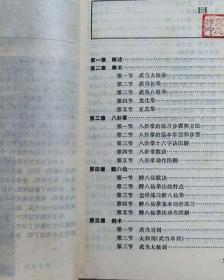 目
第一章 概述
第二章 拳术
第一节 武当太极拳
第二节 武当长拳
第三节 武当八极拳
第四节 龙化拳
第五节 玄真拳
第三章 八卦掌
第一节 八卦掌的练习步骤和方法
第二节 八卦掌的基本掌型和步型
第三节 八卦掌十六字诀图解
第四节 八卦掌歌诀
第五节 八卦掌动作图解
第四章 醉八仙
第一节 醉八仙歌诀
第二节 醉八仙拳法的特点
第三节 怎样练习醉八仙拳
第四节 醉八仙拳基本功的练习
第五节 醉八仙拳法动作图解
第五章 剑术
第一节 武当对剑
第二节 太和剑(武当单剑)
第三节 武当太极剑